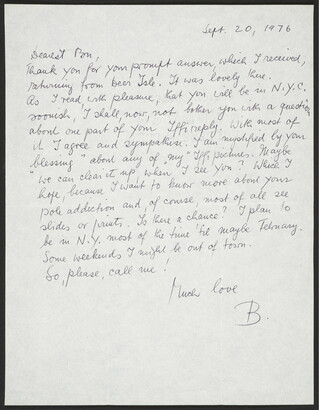 Sept. 20, 1976
Dearest Ron,
Thank you for your prompt answer, which I received,
returning from Deer Isle. It was lovely there.
As I read, with pleasure, that you will be in N.Y.C.
soonish, I shall, now, not bother you with a question
about one part of your reply. With most of
it I agree and sympathise. I am mystified by your
"blessing" about any of "my" pictures. Maybe
we can clear it up when I see you? Which I
hope, because I want to know more about your
addiction and, of course, most of all see
slides or prints. Is there a chance? I plan to
be in N.Y. most of the time 'til maybe February.
Some weekends I might be out of town.
So, please, call me!
Much love
B.